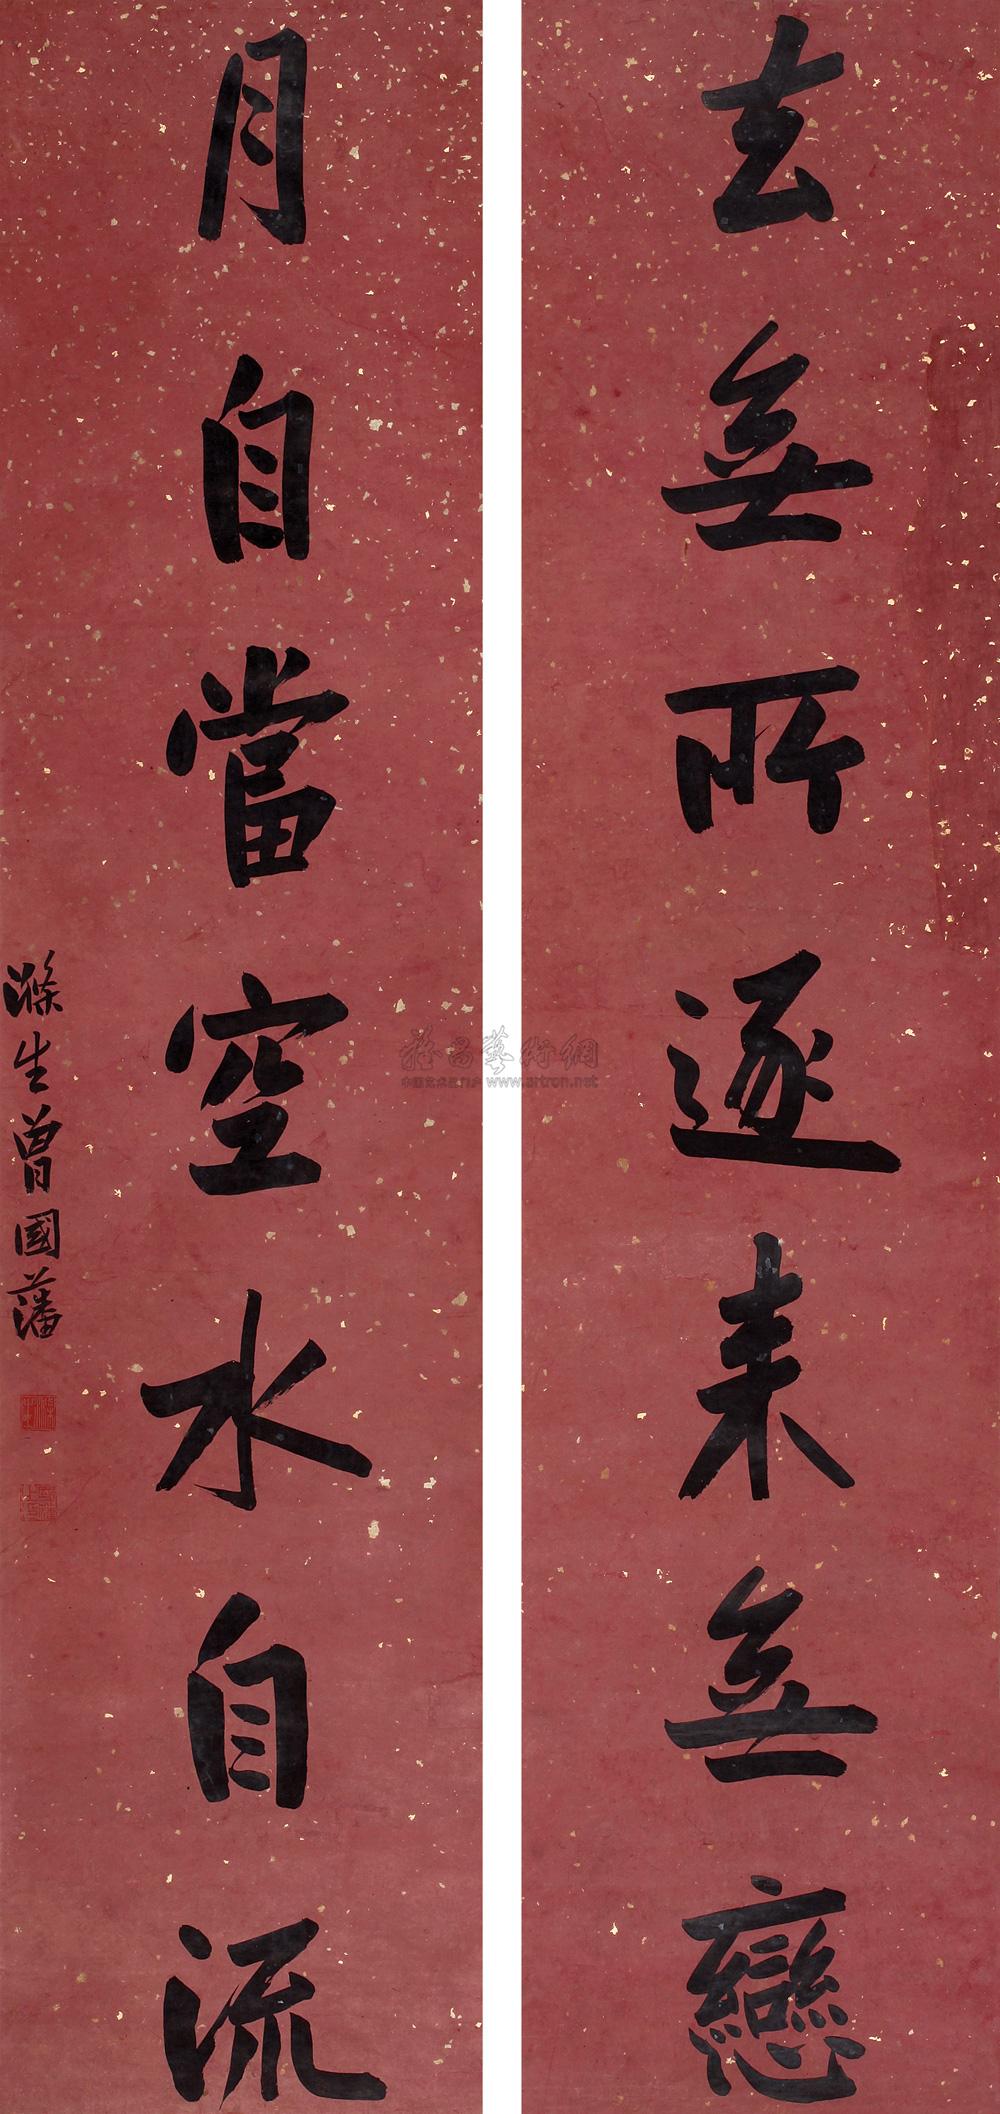 去無所逐来無戀
月自當空水自流
滌生曾國藩
雅昌藝術網
中国艺术品门户 www.artron.net